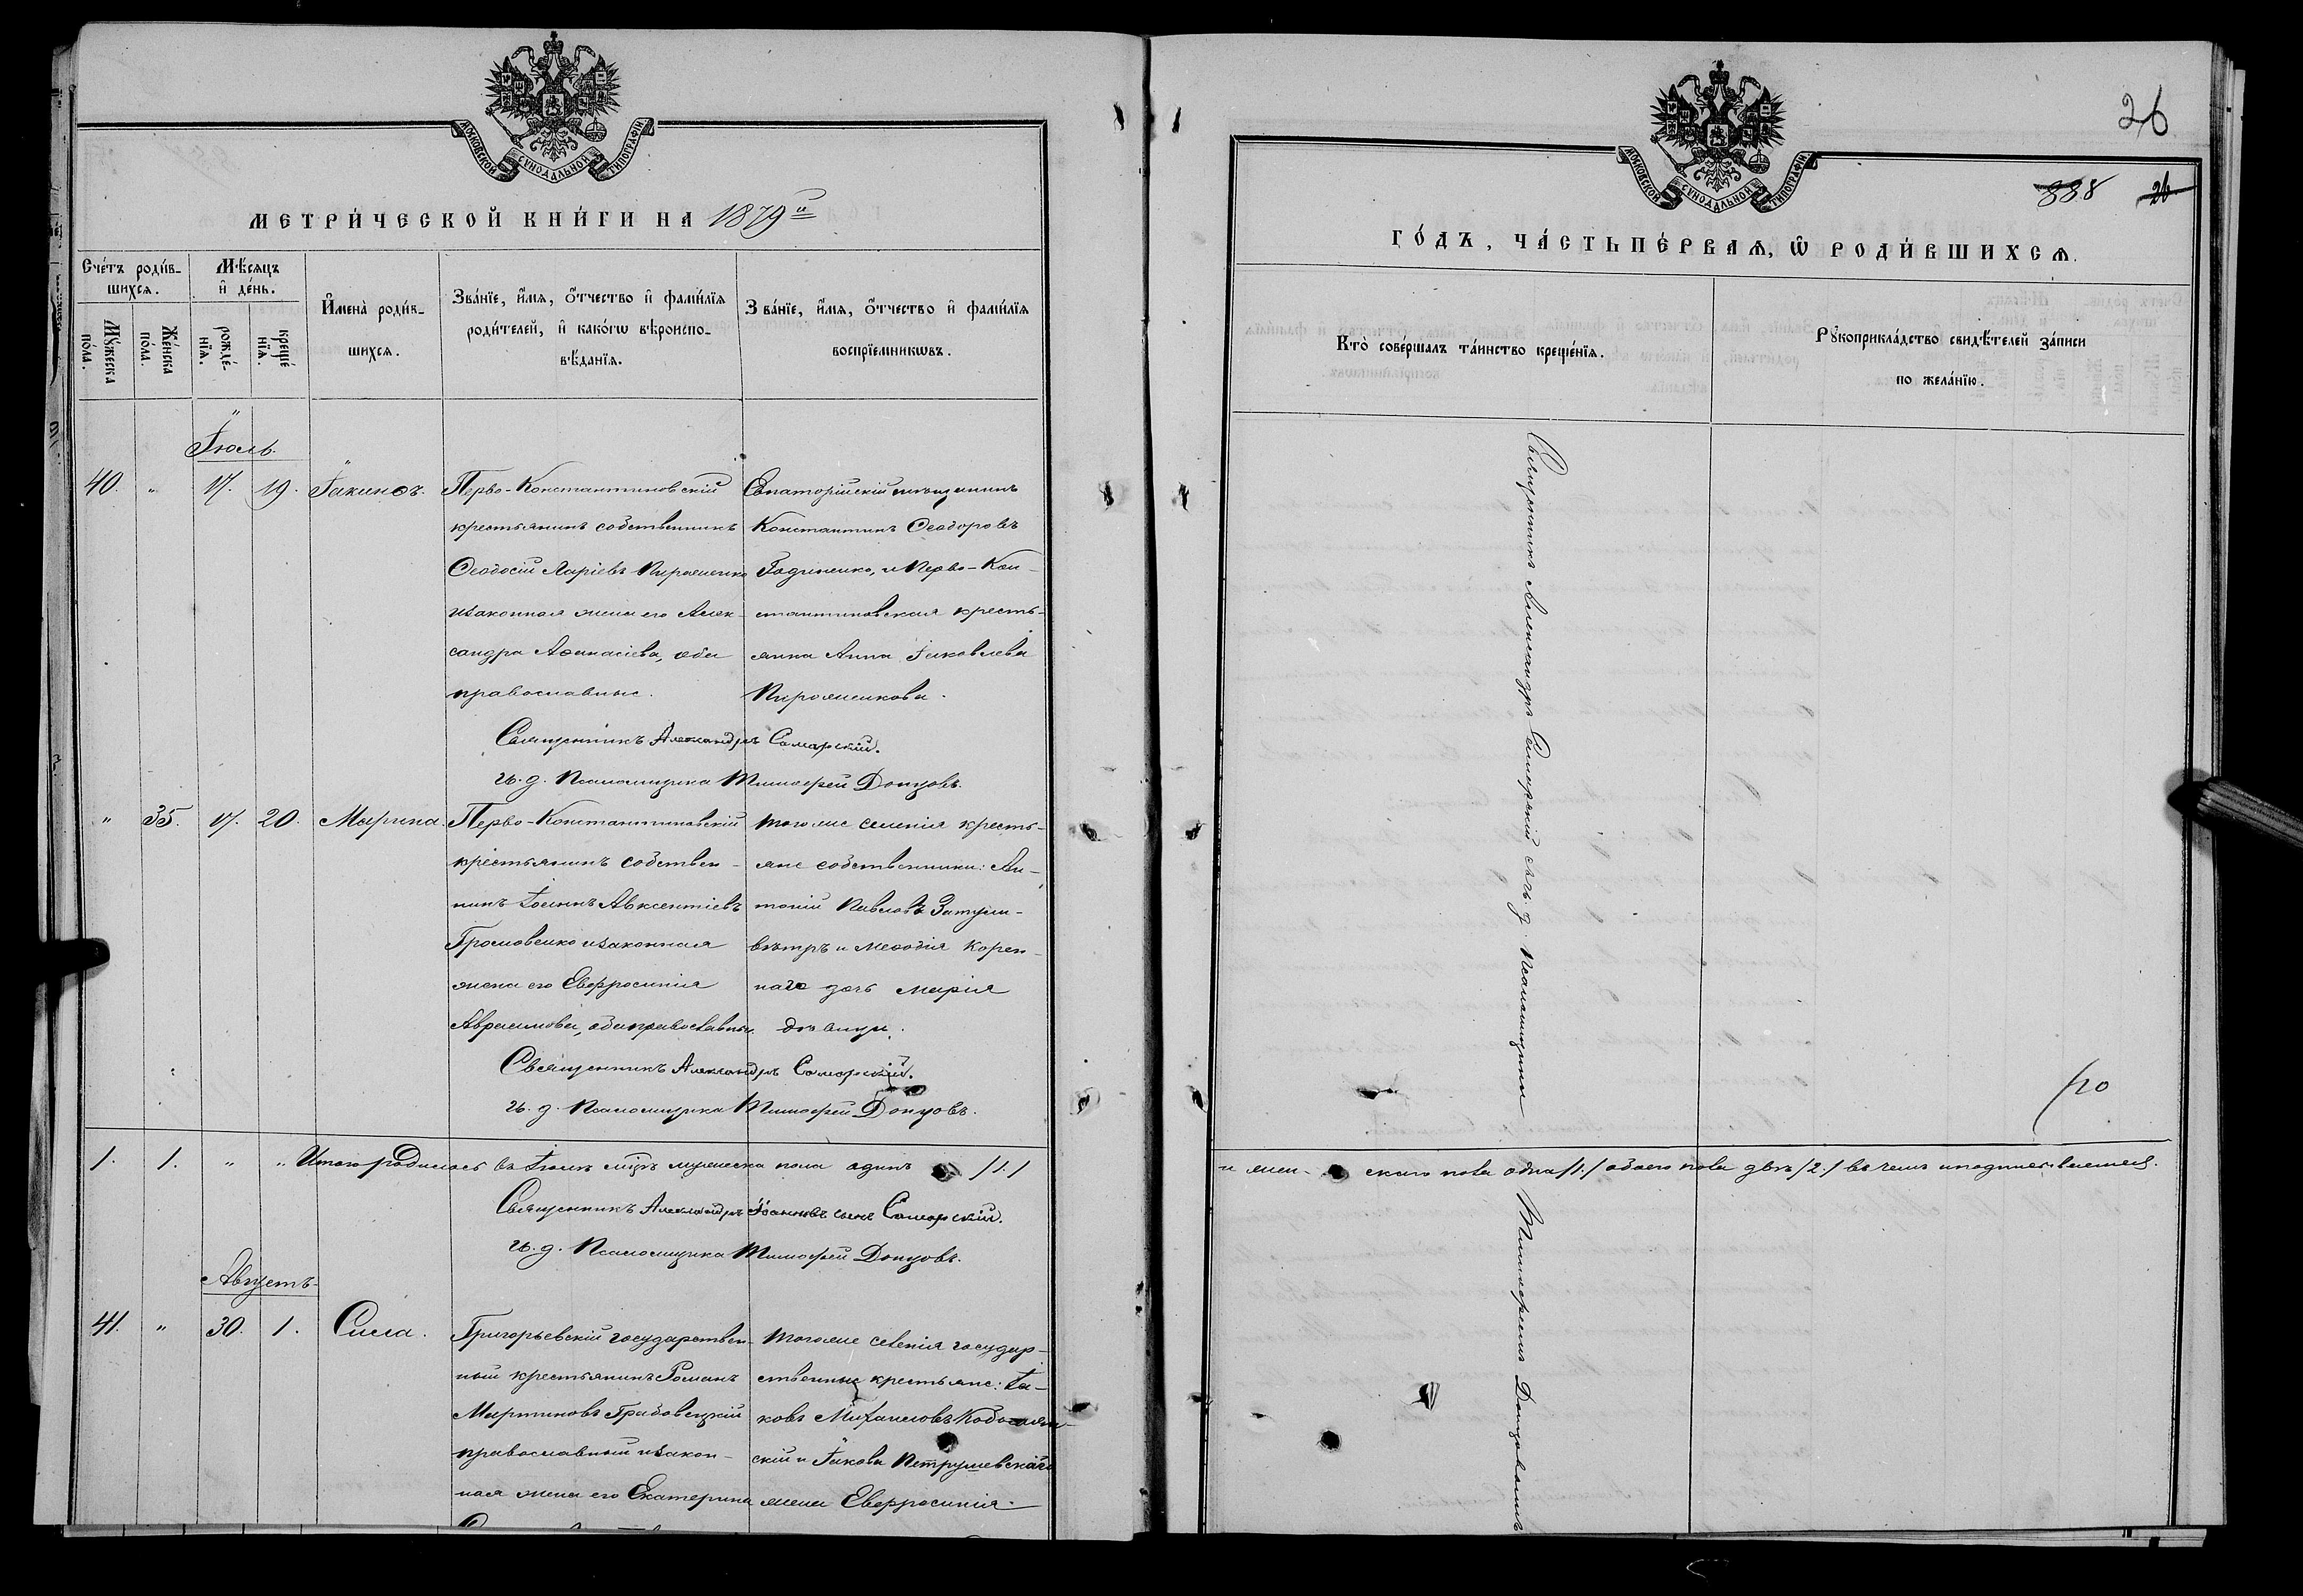 МОСКОВСКОЙ СѴНОДАЛЬНОЙ ТИПОГРАФІИ
МЕТРИ́ЧЕСКОЙ КНИ́ГИ НА 1879й
Сче́тъ роди́в-
шихсѧ.
Мѣ́сѧцъ
и҆ де́нь.
И҆мена̀ роди́в-
шихсѧ.
Зва́нїе, и҆́мѧ, ѻ҆́тчество и҆ фамі́лїѧ
роди́телей, и҆ како́гѡ вѣроиспо-
вѣ́данїѧ.
Зва́нїе, и҆́мѧ, ѻ҆́тчество и҆ фамі́лїѧ
воспрїе́мникѡвъ.
Мꙋ́жеска
по́ла.
Же́нска
по́ла.
рожде́-
нїѧ.
креще́
нїѧ.
Іюль.
40. " 17. 19. Іакинѳъ.
Перво-Константиновскій
крестьянинъ собственникъ
Ѳеодосій Ларіевъ Пироженко
и законная жена его Алек-
сандра Аѳанасіева, оба
православные.
Евпаторійскій мѣщанинъ
Константинъ Ѳеодоровъ
Годуненко, и Перво-Кон-
стантиновская кресть-
янка Анна Іаковлева
Пироженкова.
Священникъ Александръ Самарскій.
И. д. Псаломщика Тимофей Донцовъ.
" 35. 17. 20. Марина.
Перво-Константиновскій
крестьянинъ собствен-
никъ Іоаннъ Авксентіевъ
Громовенко и законная
жена его Евфросинія
Авраамова, оба православны.
тогоже селенія кресть-
яне собственники: Ан-
тоній Павловъ Затули-
вѣтръ и Меѳодія Корен-
наго дочь Марія
дѣвица.
Священникъ Александръ Самарскій.
И. д. Псаломщика Тимофей Донцовъ.
1. 1. " " Итого родилось въ Іюлѣ м҃цѣ мужеска пола одинъ /1/
Священникъ Александръ Іоанновъ сынъ Самарскій.
И. д. Псаломщика Тимофей Донцовъ.
Августъ
41. " 30. 1. Сила.
Григорьевскій государствен-
ный крестьянинъ Романъ
Мартиновъ Грабовецкій
православный и закон-
ная жена его Екатерина
тогоже селенія государ-
ственные крестьяне: Іа-
ковъ Михаиловъ
скій и Іакова Петрушевскаго
жена Евфросинія.
26
МОСКОВСКОЙ СѴНОДАЛЬНОЙ ТИПОГРАФІИ
888 26
ГО́ДЪ, ЧА́СТЬ ПЕ́РВАѦ, Ѡ҆ РОДИ́ВШИХСѦ.
Кто̀ соверша́лъ та́инство креще́нїѧ.
Рꙋкоприкла́дство свидѣ́телей за́писи
по жела́нїю.
Священникъ Александръ Самарскій съ и. д. Псаломщика
и жен- скаго пола одна /1/ обоего пола двѣ /2/ въ чемъ и подписываемся.
Тимофеемъ Донцовымъ